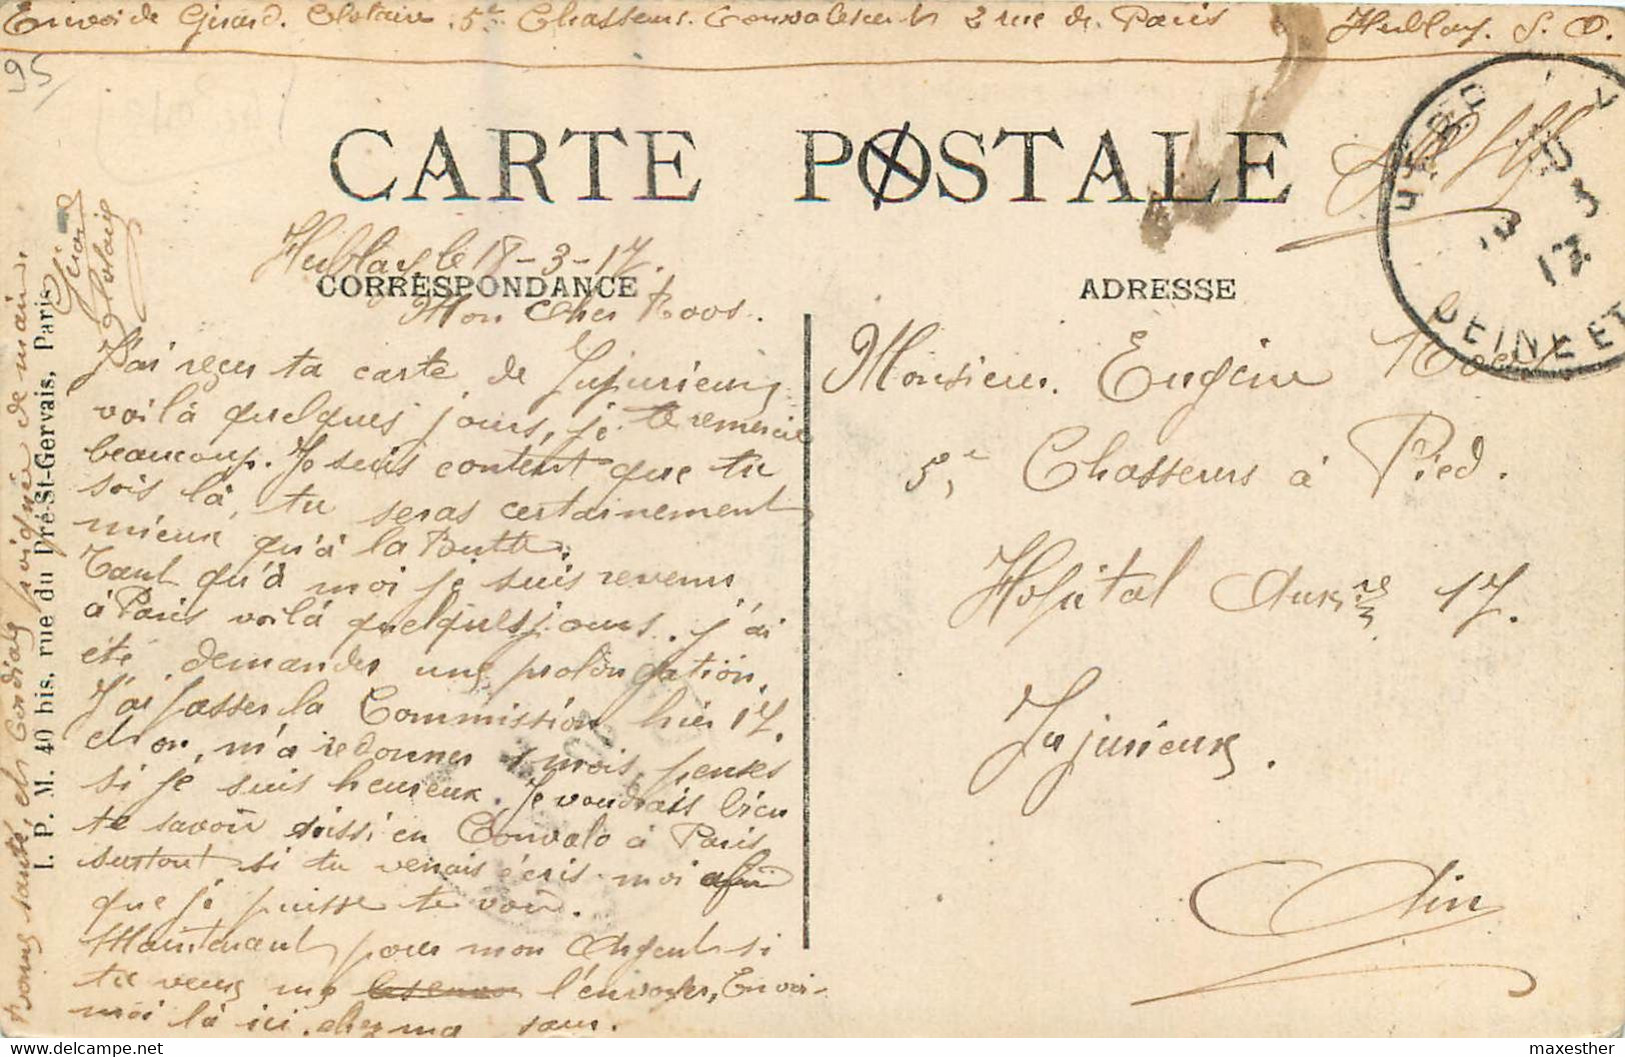 Envoi de Girard. Clotaire. 5e Chasseurs. Convalescent 2 rue de Paris Herblay. S. O.
95
CARTE POSTALE
Herblay, le 18-3-17.
CORRESPONDANCE
ADRESSE
SEINE ET
Mon Cher Roos.
J'ai reçu ta carte de Jujurieux
voilà quelques jours, je te remercie
beaucoup. Je suis content que tu
sois là, tu seras certainement
mieux qu'à la Butte.
Tant qu'à moi je suis revenu
à Paris voilà quelques jours. J'ai
été demander une prolongation.
J'ai passer la Commission hier 17.
et on m'a redonner 1 mois, penses
si je suis heureux. Je voudrais bien
te savoir aussi en Convalo à Paris
surtout si tu venais écris-moi afin
que je puisse te voir.
Maintenant pour mon Argent si
tu veux me l'envoyer, Envoi-
moi là ici. chez ma sœur.
bonne santé, et Cordiale poignée de main.
Girard Clotaire
I. P. M. 40 bis, rue du Pré-St-Gervais, Paris
Monsieur. Eugène Roos
5e Chasseurs à Pied.
Hôpital Auxre 17.
Jujurieux.
Ain
Delcampe.net
maxesther